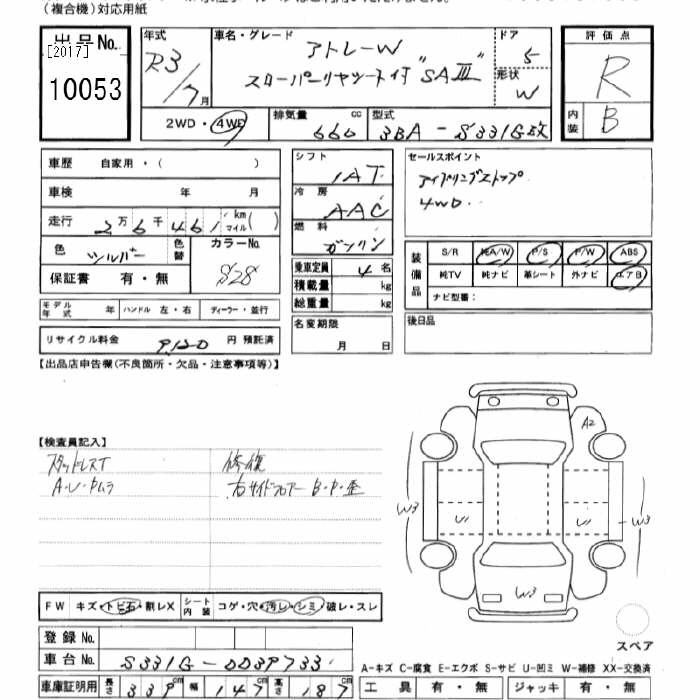 (複合機)対応用紙
出品No.
[2017]
10053
年式
R3/7月
車名・グレード
アトレーW
スローパーリヤシート付 "SAⅢ"
ドア
5
形状
W
評価点
R
内装
B
2WD・4WD
排気量
660 cc
型式
3BA-S331G改
車歴 自家用・( )
車検 年 月
走行 2万6千461 km マイル( )
色 シルバー 色替
カラーNo.
S28
保証書 有・無
モデル年式 年 ハンドル 左・右 ディーラー・並行
リサイクル料金 9,120 円 預託済
シフト
IAT
冷房
AAC
燃料
ガソリン
乗車定員 4名
積載量 kg
総重量 kg
名変期限
月 日
セールスポイント
アイドリングストップ
4WD
装備品
S/R 純A/W P/S P/W ABS
純TV 純ナビ 革シート 外ナビ エアB
ナビ型番:
後日品
【出品店申告欄(不良箇所・欠品・注意事項等)】
【検査員記入】
スタッドレスT
A・U・ナムラ
修復
右サイドフロアー B・P・歪
A2
W3
U
U
W3
W3
FW キズ・トビ石・割レX シート内装 コゲ・穴・汚レ・シミ・破レ・スレ
登録No.
車台No. S331G-0039733
車庫証明用 長さ 339cm 幅 147cm 高さ 187cm
スペア
A-キズ C-腐食 E-エクボ S-サビ U-凹ミ W-補修 XX-交換済
工具 有・無 ジャッキ 有・無